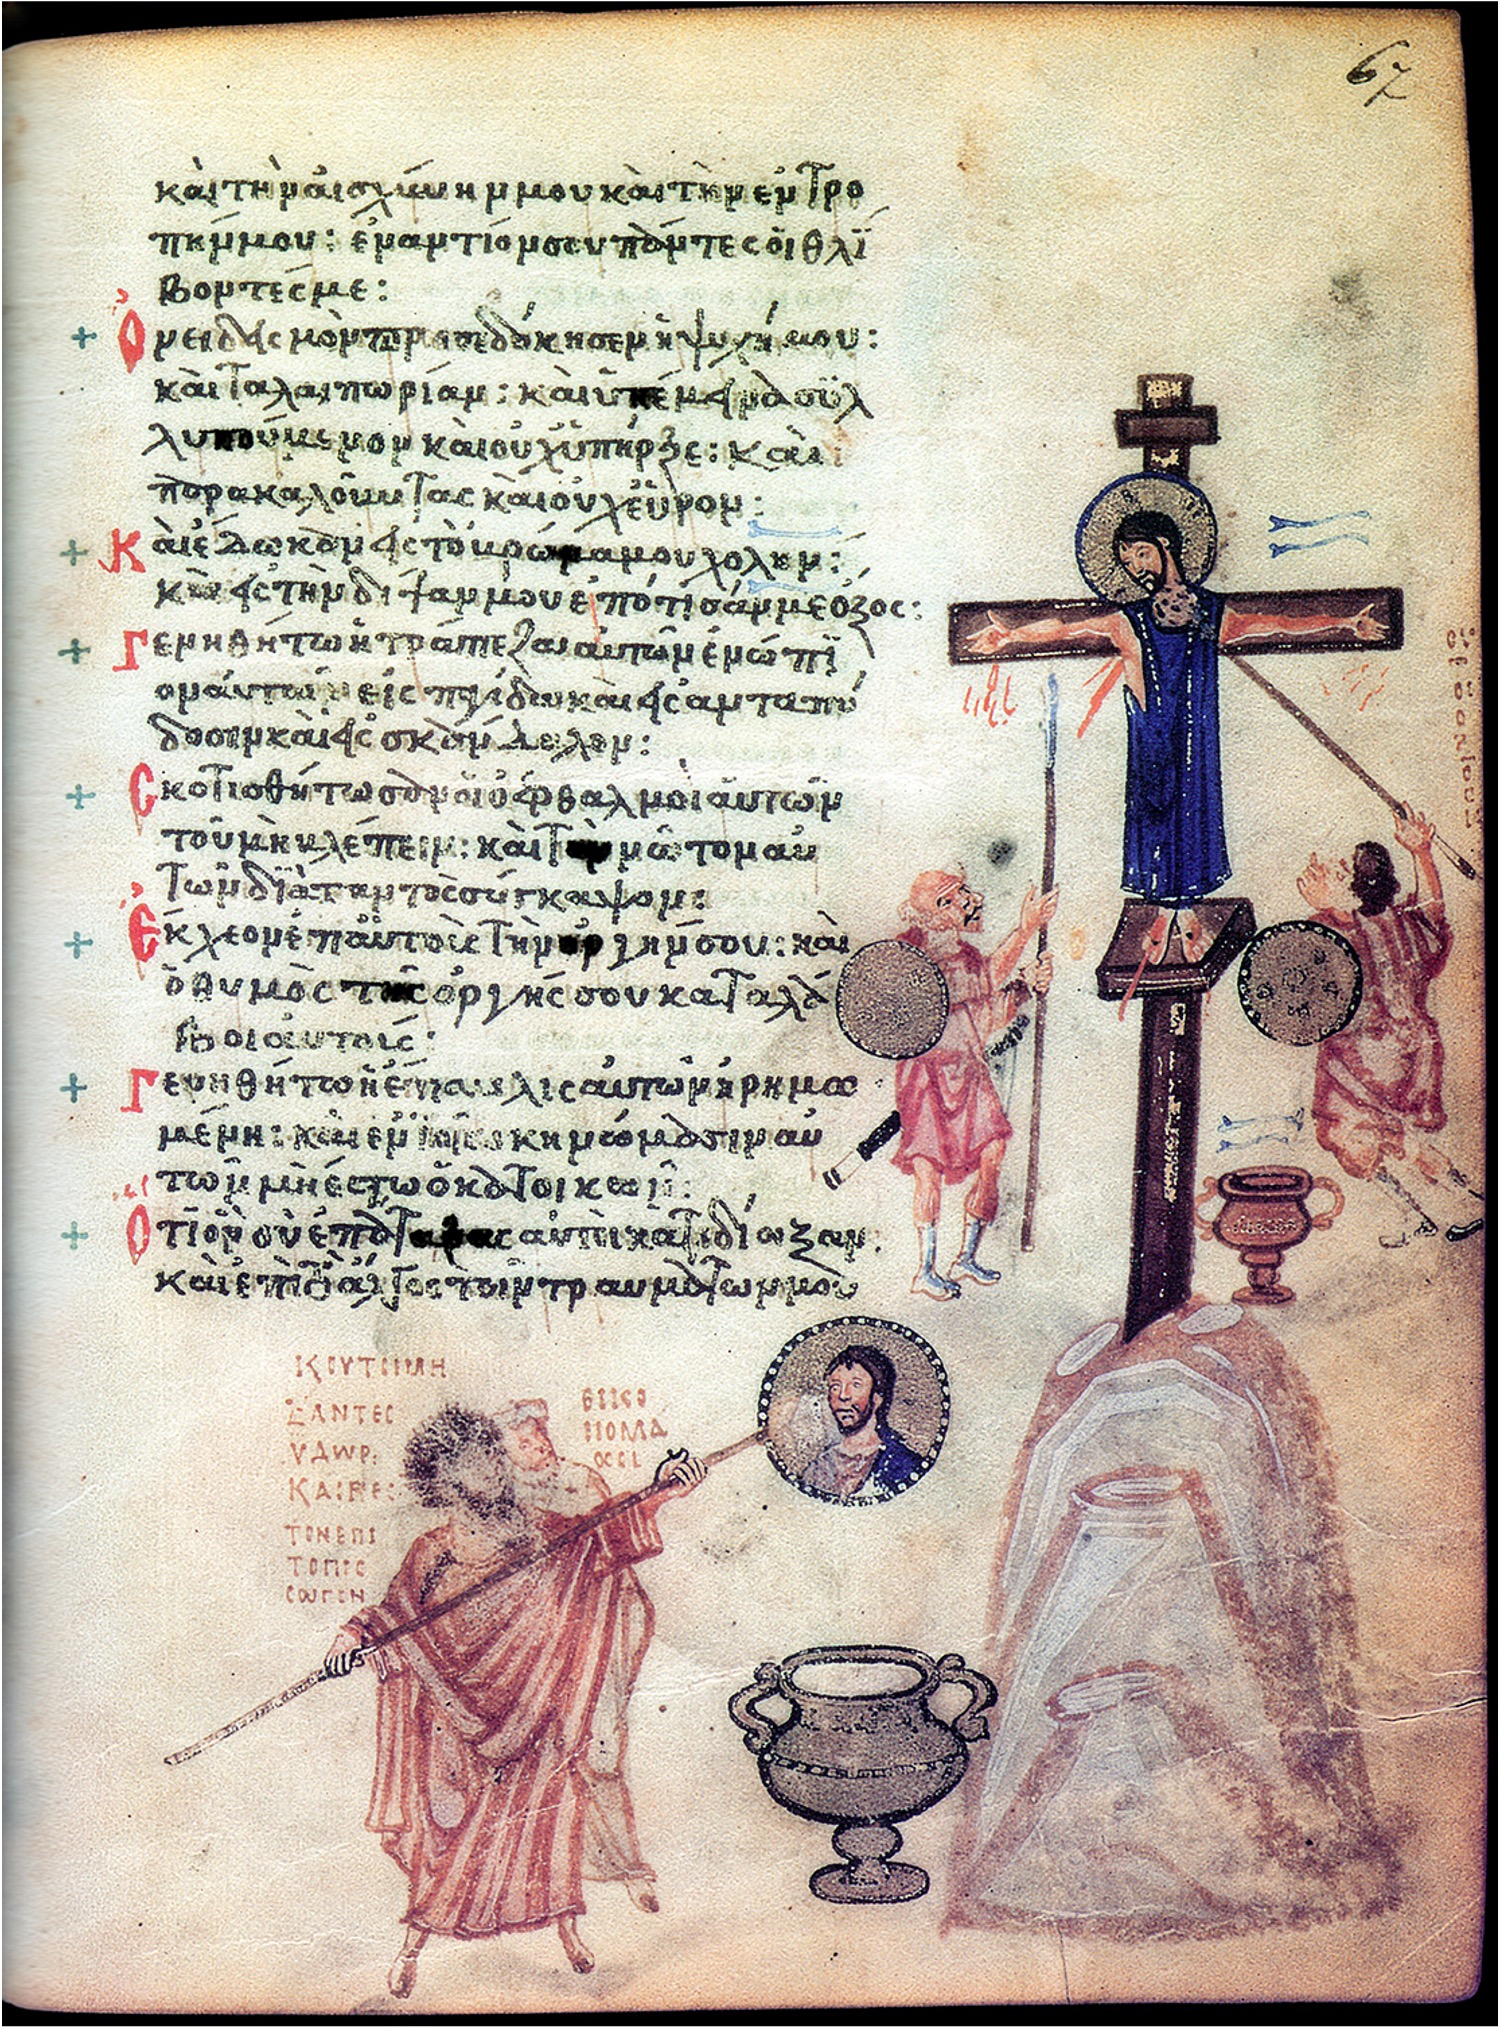 67
καὶ τὴν αἰσχύνην μου καὶ τὴν ἐντρο
πήν μου: ἐναντίον σου πάντες οἱ θλί
βοντές με:
Ὀνειδισμὸν προσεδόκησεν ἡ ψυχή μου:
καὶ ταλαιπωρίαν: καὶ ὑπέμεινα συλ
λυπούμενον καὶ οὐχ ὑπῆρξε: καὶ
παρακαλοῦντας καὶ οὐχ εὗρον:
Καὶ ἔδωκαν εἰς τὸ βρῶμά μου χολήν:
καὶ εἰς τὴν δίψαν μου ἐπότισάν με ὄξος:
Γενηθήτω ἡ τράπεζα αὐτῶν ἐνώπι
ον αὐτῶν εἰς παγίδα καὶ εἰς ἀνταπό
δοσιν καὶ εἰς σκάνδαλον:
Σκοτισθήτωσαν οἱ ὀφθαλμοὶ αὐτῶν
τοῦ μὴ βλέπειν: καὶ τὸν νῶτον αὐ
τῶν διὰ παντὸς σύγκαμψον:
Ἔκχεον ἐπ αὐτοὺς τὴν ὀργήν σου: καὶ
ὁ θυμὸς τῆς ὀργῆς σου καταλά
βοι αὐτούς:
Γενηθήτω ἡ ἔπαυλις αὐτῶν ἠρημω
μένη: καὶ ἐν τοῖς σκηνώμασιν αὐ
τῶν μὴ ἔστω ὁ κατοικῶν:
Ὅτι ὃν σὺ ἐπάταξας αὐτοὶ κατεδίωξαν.
καὶ ἐπὶ τὸ ἄλγος τῶν τραυμάτων μου
ΥΔΩΡ